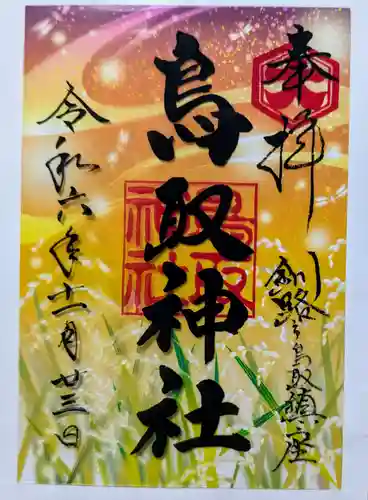 奉拝
釧路之鳥取鎮座
鳥取神社
鳥取神社
令和六年十一月廿三日